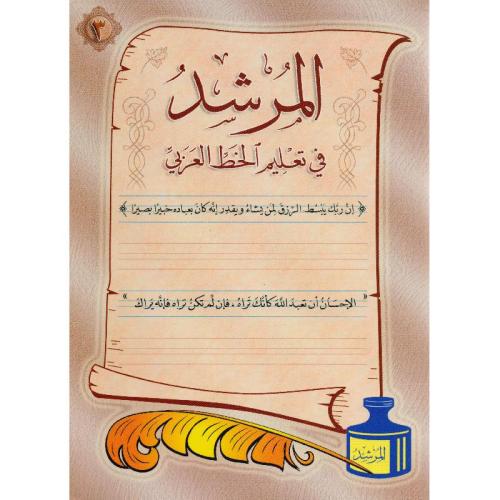 ٣
المرشد
في تعليم الخط العربي
﴿ إن ربك يبسط الرزق لمن يشاء ويقدر إنه كان بعباده خبيرا بصيرا ﴾
"الإحسان أن تعبد الله كأنك تراه ، فإن لم تكن تراه فإنه يراك"
المرشد